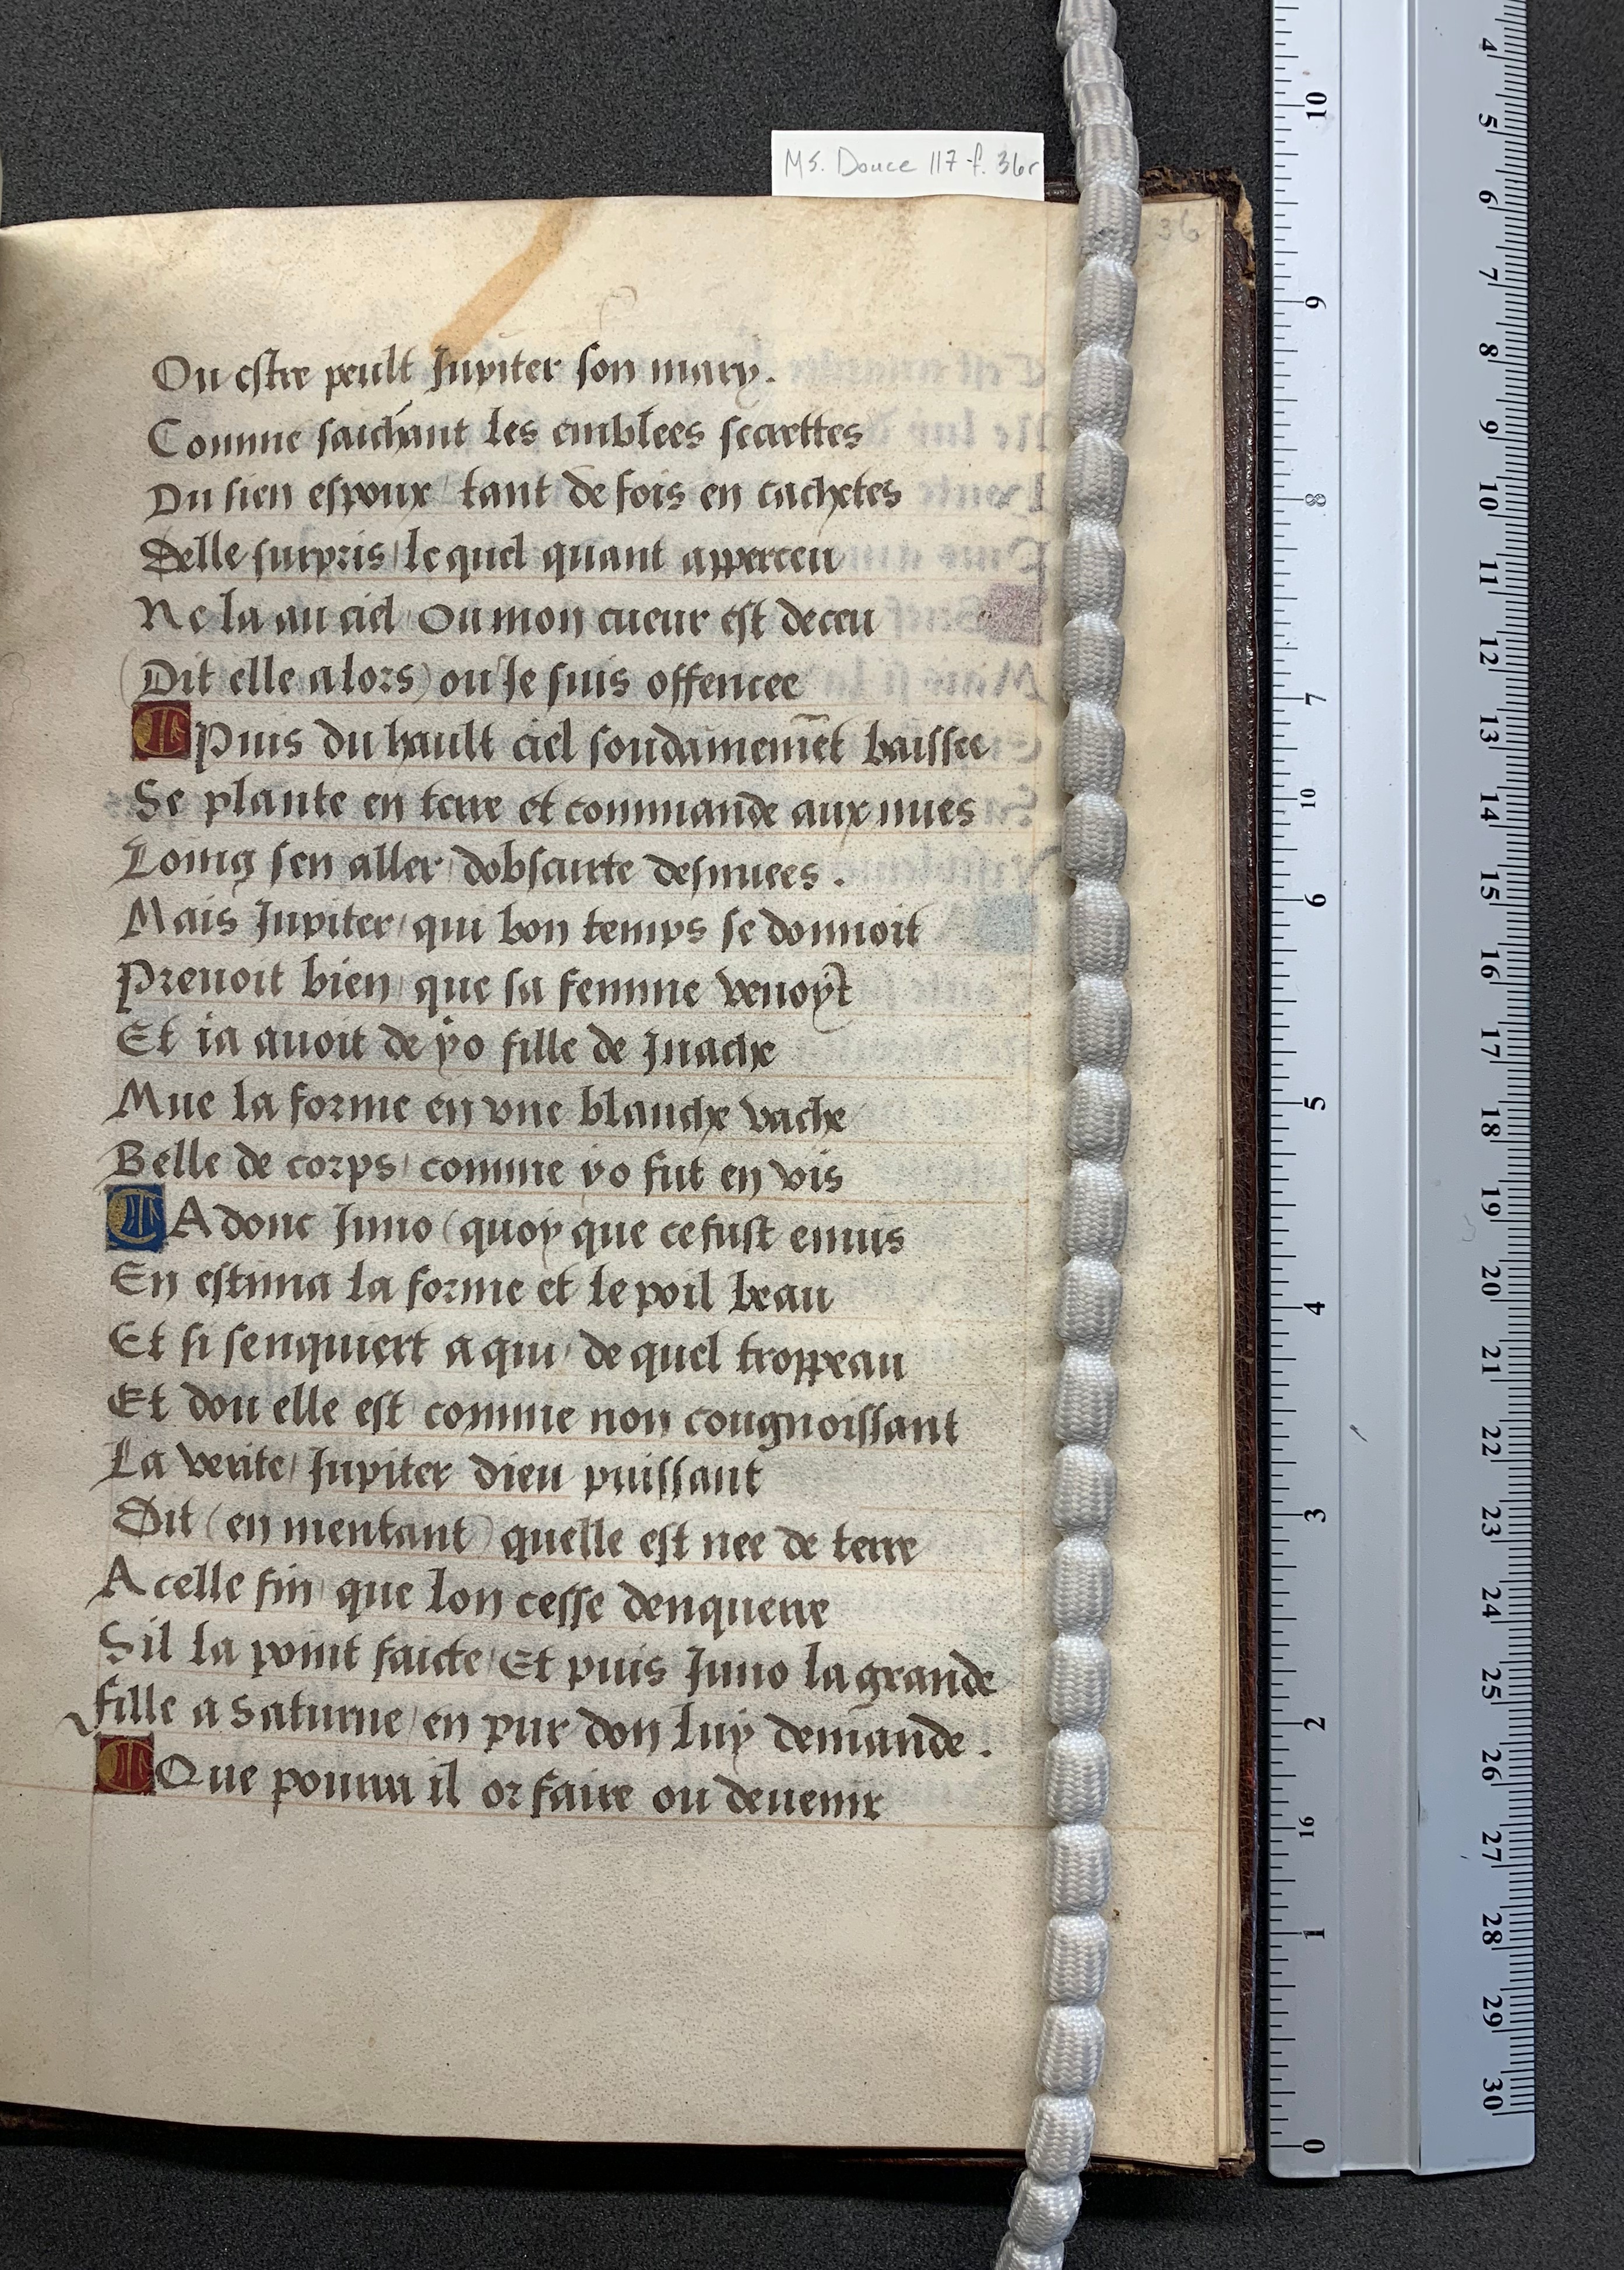 MS. Douce 117 f. 36r
36
Ou estre peult Jupiter son mary.
Comme saichant les emblees secrettes
Du sien espoux / tant de fois en cachetes
Delle surpris / lequel quant apperceu
Ne la au ciel Ou mon cueur est deceu
(Dit elle alors) ou Je suis offencee
Puis du hault ciel soudainemēt baissee
Se plante en terre et commande aux nues
Loing sen aller / dobscurte desnuees.
Mais Jupiter / qui bon temps se donnoit
Preuoit bien / que sa femme venoyt
Et ia auoit de yo fille de Jnache
Mue la forme en vne blanche vache
Belle de corps / comme yo fut en vis
Adonc Juno (quoy que ce fust enuis
En estima la forme et le poil beau
Et si senquiert a qui / de quel troppeau
Et dou elle est comme non congnoissant
La verite / Jupiter dieu puissant
Dit (en mentant) quelle est nee de terre
A celle fin / que lon cesse denquerre
Sil la point faicte / Et puis Juno la grande
fille a Saturne / en pur don luy demande.
Que pourra il or faire ou deuenir
4
5
6
7
8
9
10
11
12
13
14
15
16
17
18
19
20
21
22
23
24
25
26
27
28
29
30
10
9
8
7
10
6
5
4
3
2
16
1
0